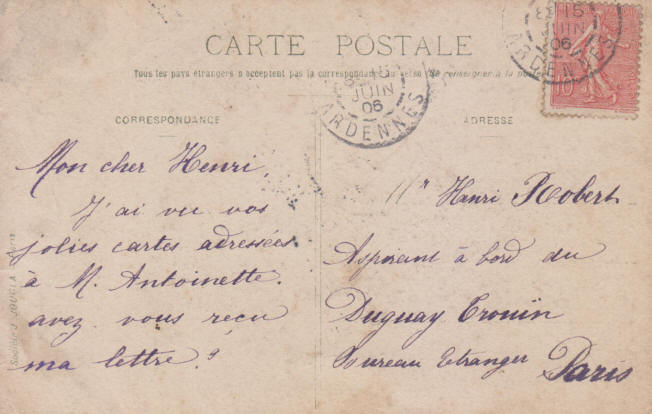 CARTE POSTALE
Tous les pays étrangers n'acceptent pas la correspondance au verso se renseigner à la poste
CORRESPONDANCE
ADRESSE
15
JUIN
06
ARDENNES
JUIN
06
ARDENNES
10
Mon cher Henri,
J'ai vu vos
jolies cartes adressées
à M. Antoinette.
avez vous reçu
ma lettre?
Mr Henri Robert
Aspirant à bord du
Duguay Trouin
Bureau Etranger
Paris
J. JOUGLA